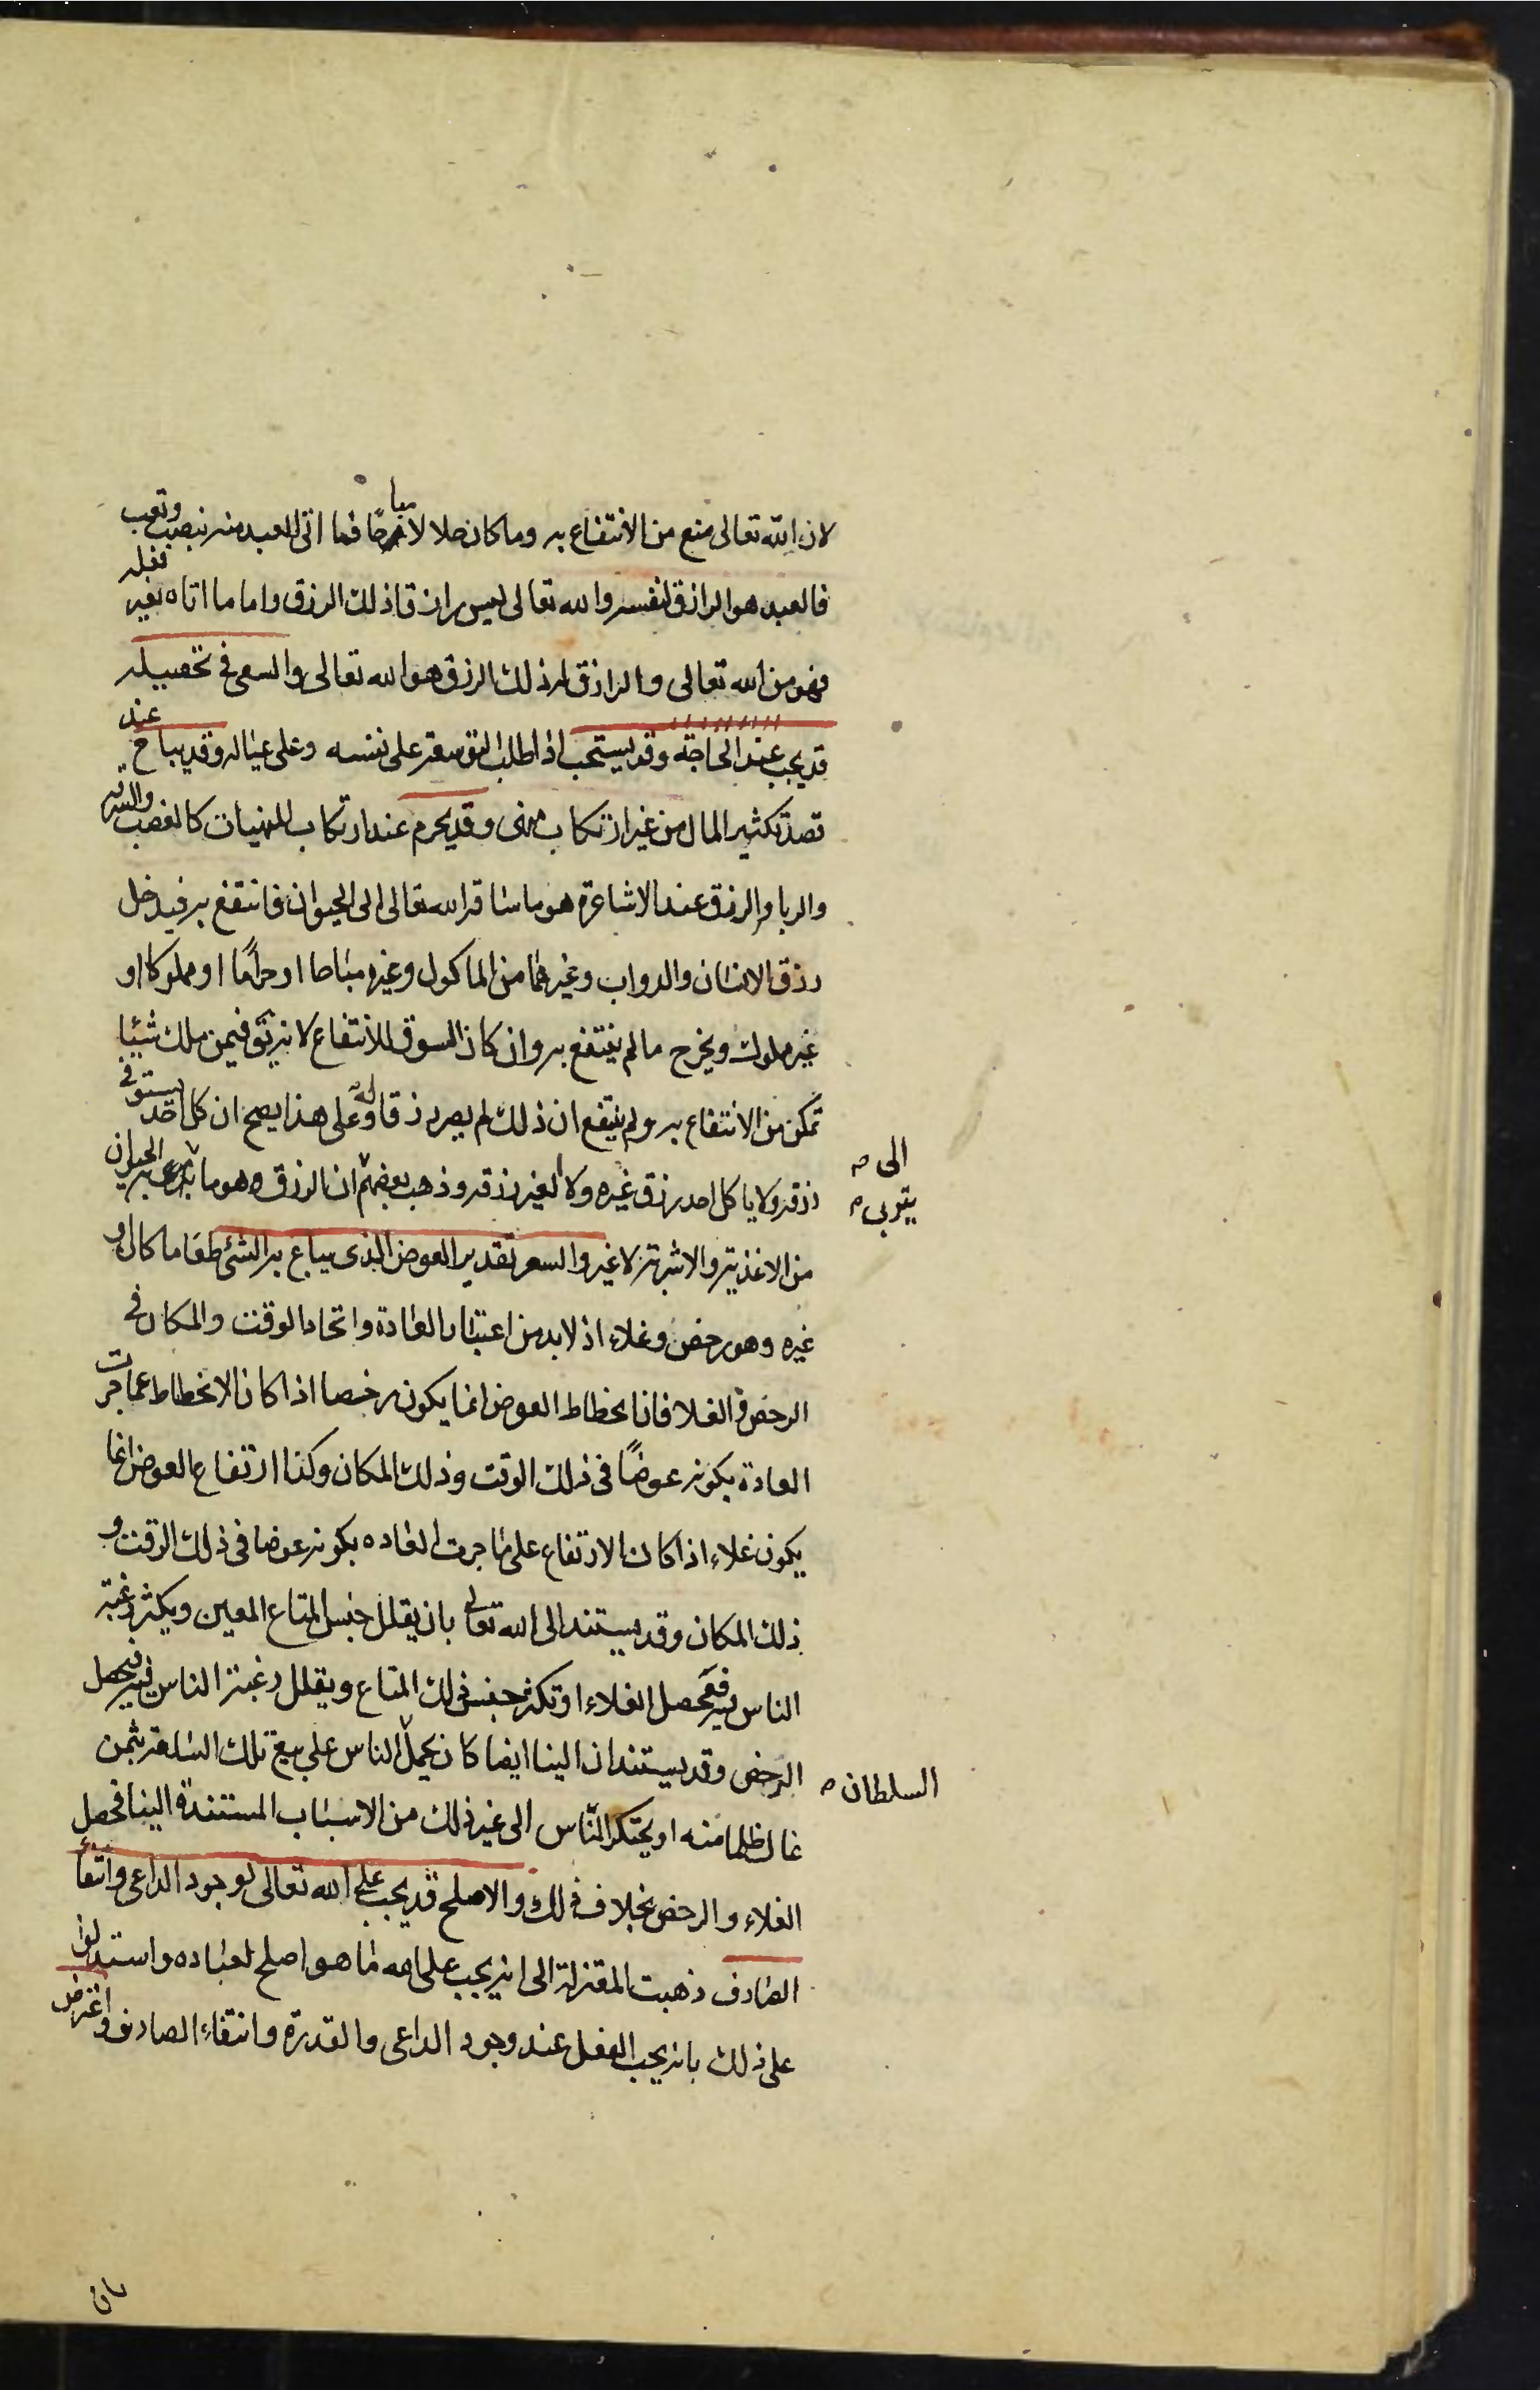 لان الله تعالى منع من الانتفاع به وما كان حلالا مباحا فما اتى العبد منه بنصب وتعب
فالعبد هو الرازق لنفسه والله تعالى ليس رازقا ذلك الرزق واما ما اتاه بغير فعله
فهو من الله تعالى والرازق له ذلك الرزق هو الله تعالى والسعى فى تحصيله
قد يجب عند الحاجة وقد يستحب اذا طلب التوسعة على نفسه وعلى عياله وقد يباح عند
قصد تكثير المال من غير ارتكاب منهى وقد يحرم عند ارتكاب المنهيات كالغصب والسرقة
والربا والرزق عند الاشاعرة هو ما ساقه الله تعالى الى الحيوان فانتفع به فيدخل
رزق الانسان والدواب وغيرهما من الماكول وغيره مباحا او حراما او مملوكا او
غير مملوك ويخرج ما لم ينتفع به وان كان السوق للانتفاع لانه يق فيمن ملك شيئا
تمكن من الانتفاع به ولم ينتفع ان ذلك لم يصر رزقا له وعلى هذا يصح ان كل احد يستوفى
رزقه ولا ياكل احد رزق غيره ولا الغير رزقه وذهب بعضهم الى ان الرزق هو ما يتربى به الحيوان
من الاغذية والاشربة لا غير والسعر تقدير العوض الذى يباع به الشئ طعاما كان او
غيره وهو رخص وغلاء اذ لا بد من اعتبار العادة واتحاد الوقت والمكان فى
الرخص و الغلا فان انحطاط العوض انما يكون رخصا اذا كان الانحطاط عما جرت
العادة بكونه عوضا فى ذلك الوقت وذلك المكان وكذا ارتفاع العوض انما
يكون غلاء اذا كان الارتفاع على ما جرت العاده بكونه عوضا فى ذلك الوقت و
ذلك المكان وقد يستند الى الله تعالى بان يقلل جنس المتاع المعين ويكثر رغبة
الناس فيه فيحصل الغلاء او تكثر جنس ذلك المتاع ويقلل رغبة الناس فيه فيحصل
الرخص وقد يستندان الينا ايضا كان يحمل السلطان الناس على بيع تلك السلعة بثمن
غال ظلما منه او يحتكر الناس الى غير ذلك من الاسباب المستندة الينا فحصل
الغلاء والرخص بخلاف ذلك والاصلح قد يجب على الله تعالى لوجود الداعى وانتفاء
الصارف ذهبت المعتزلة الى انه يجب على الله ما هو اصلح لعباده واستدلوا
على ذلك بانه يجب الفعل عند وجود الداعى والقدرة وانتفاء الصارف واعترض
بان